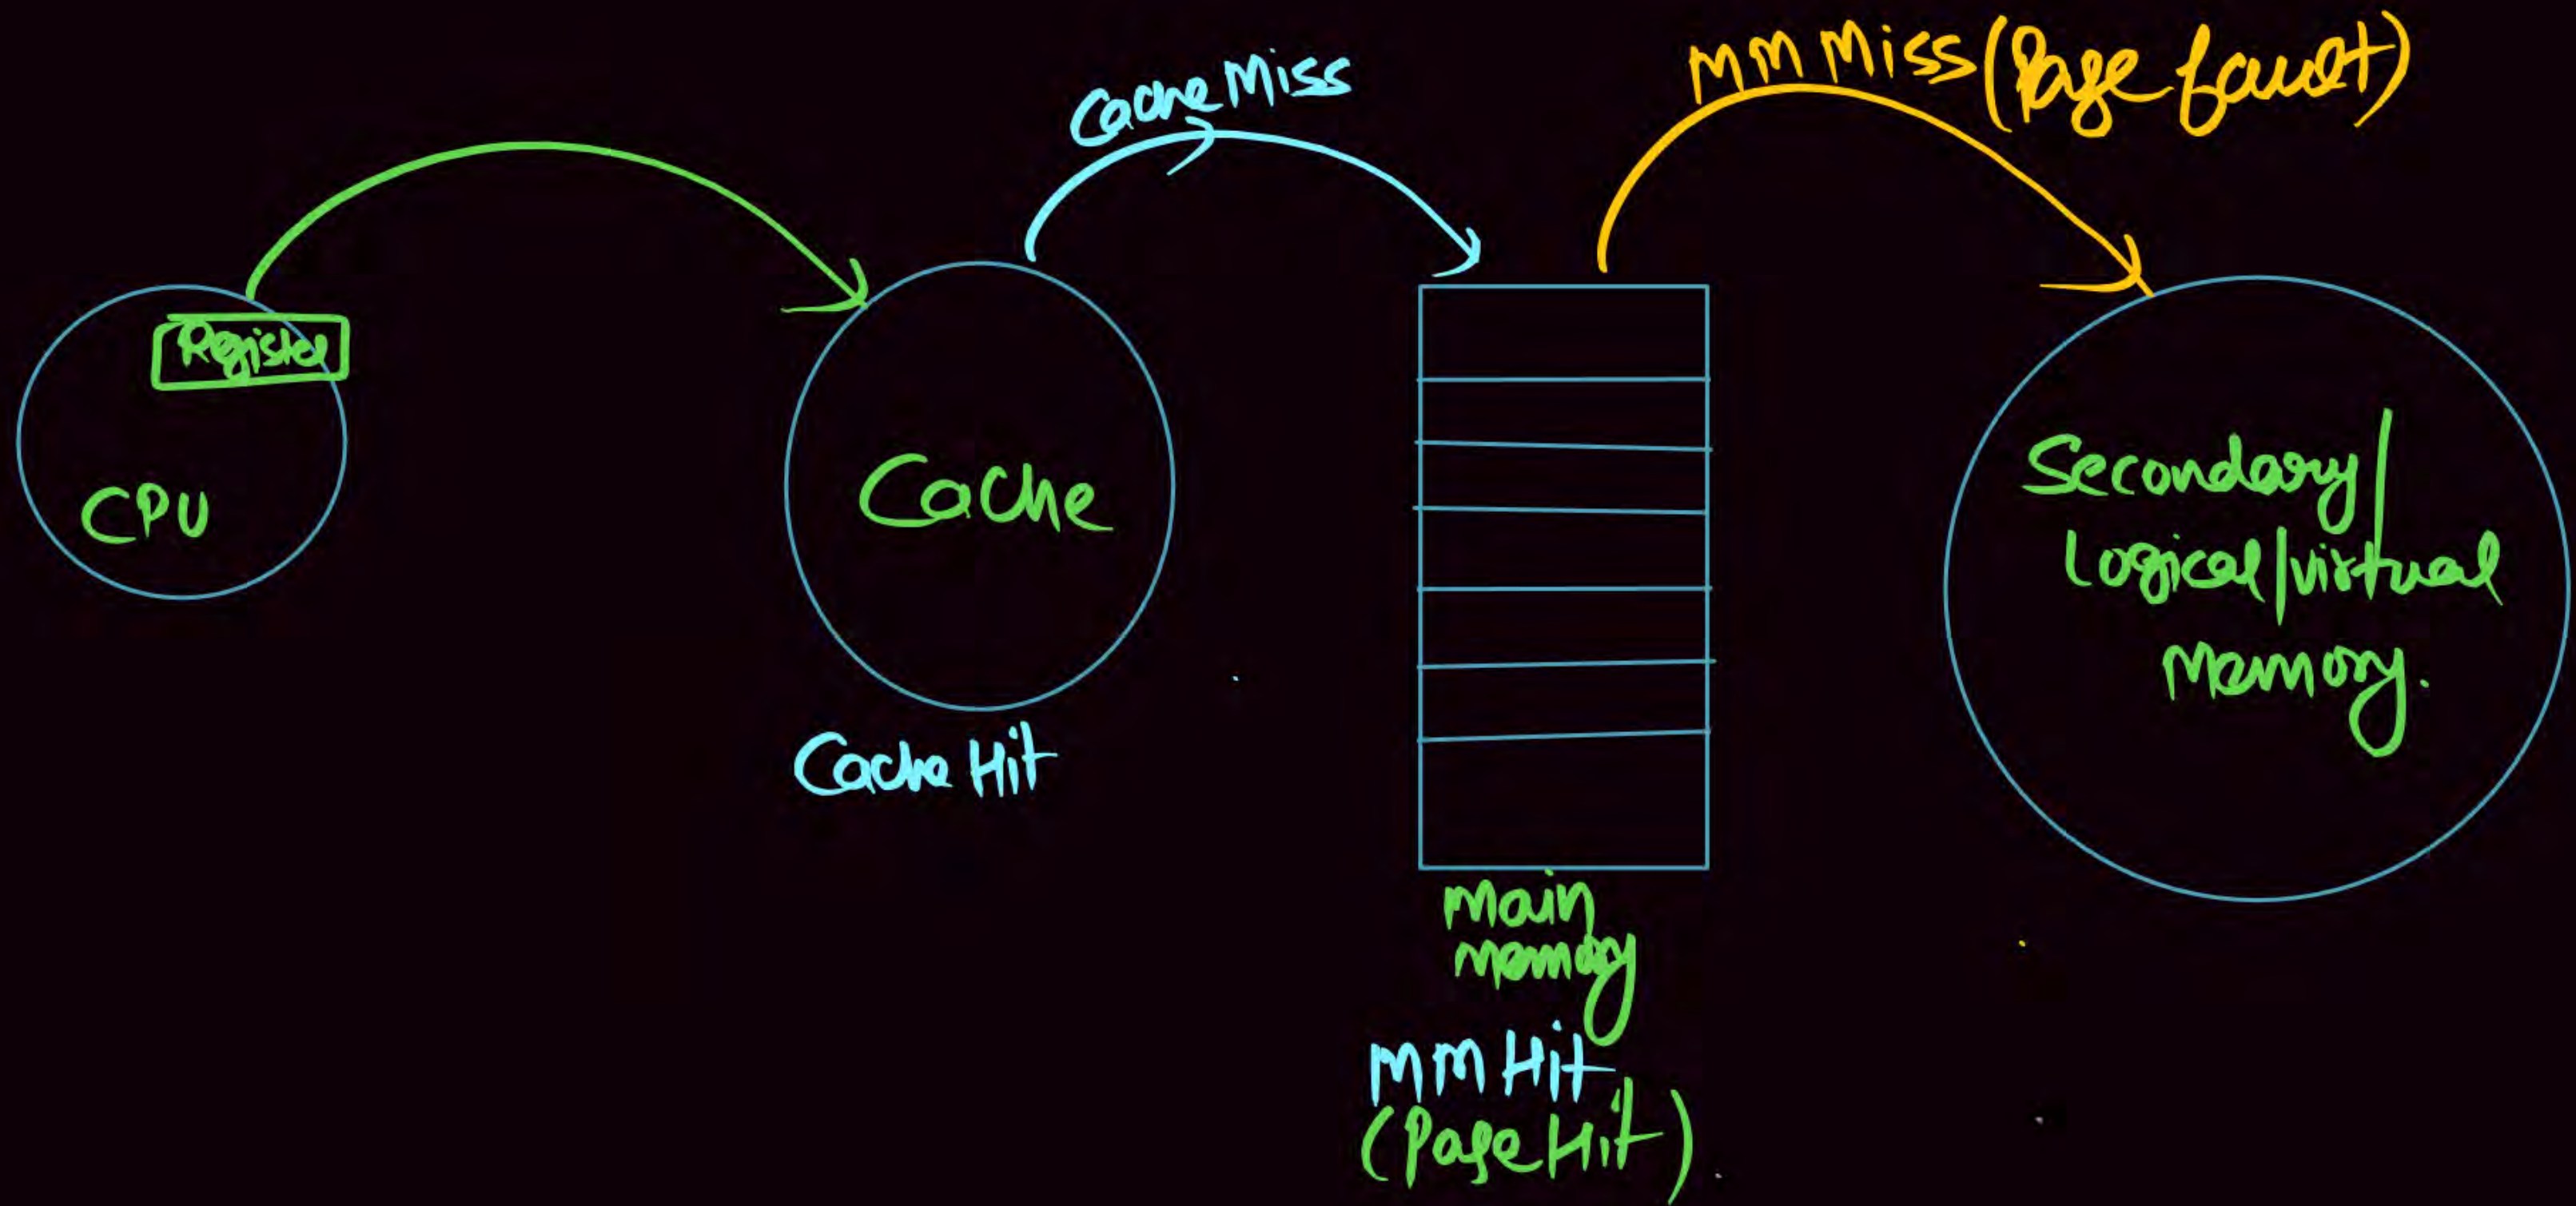 Cache Miss
MM Miss (Page fault)
Register
CPU
Cache
Secondary/
Logical/virtual
Memory.
Cache Hit
Main
memory
MM Hit
(Page Hit)